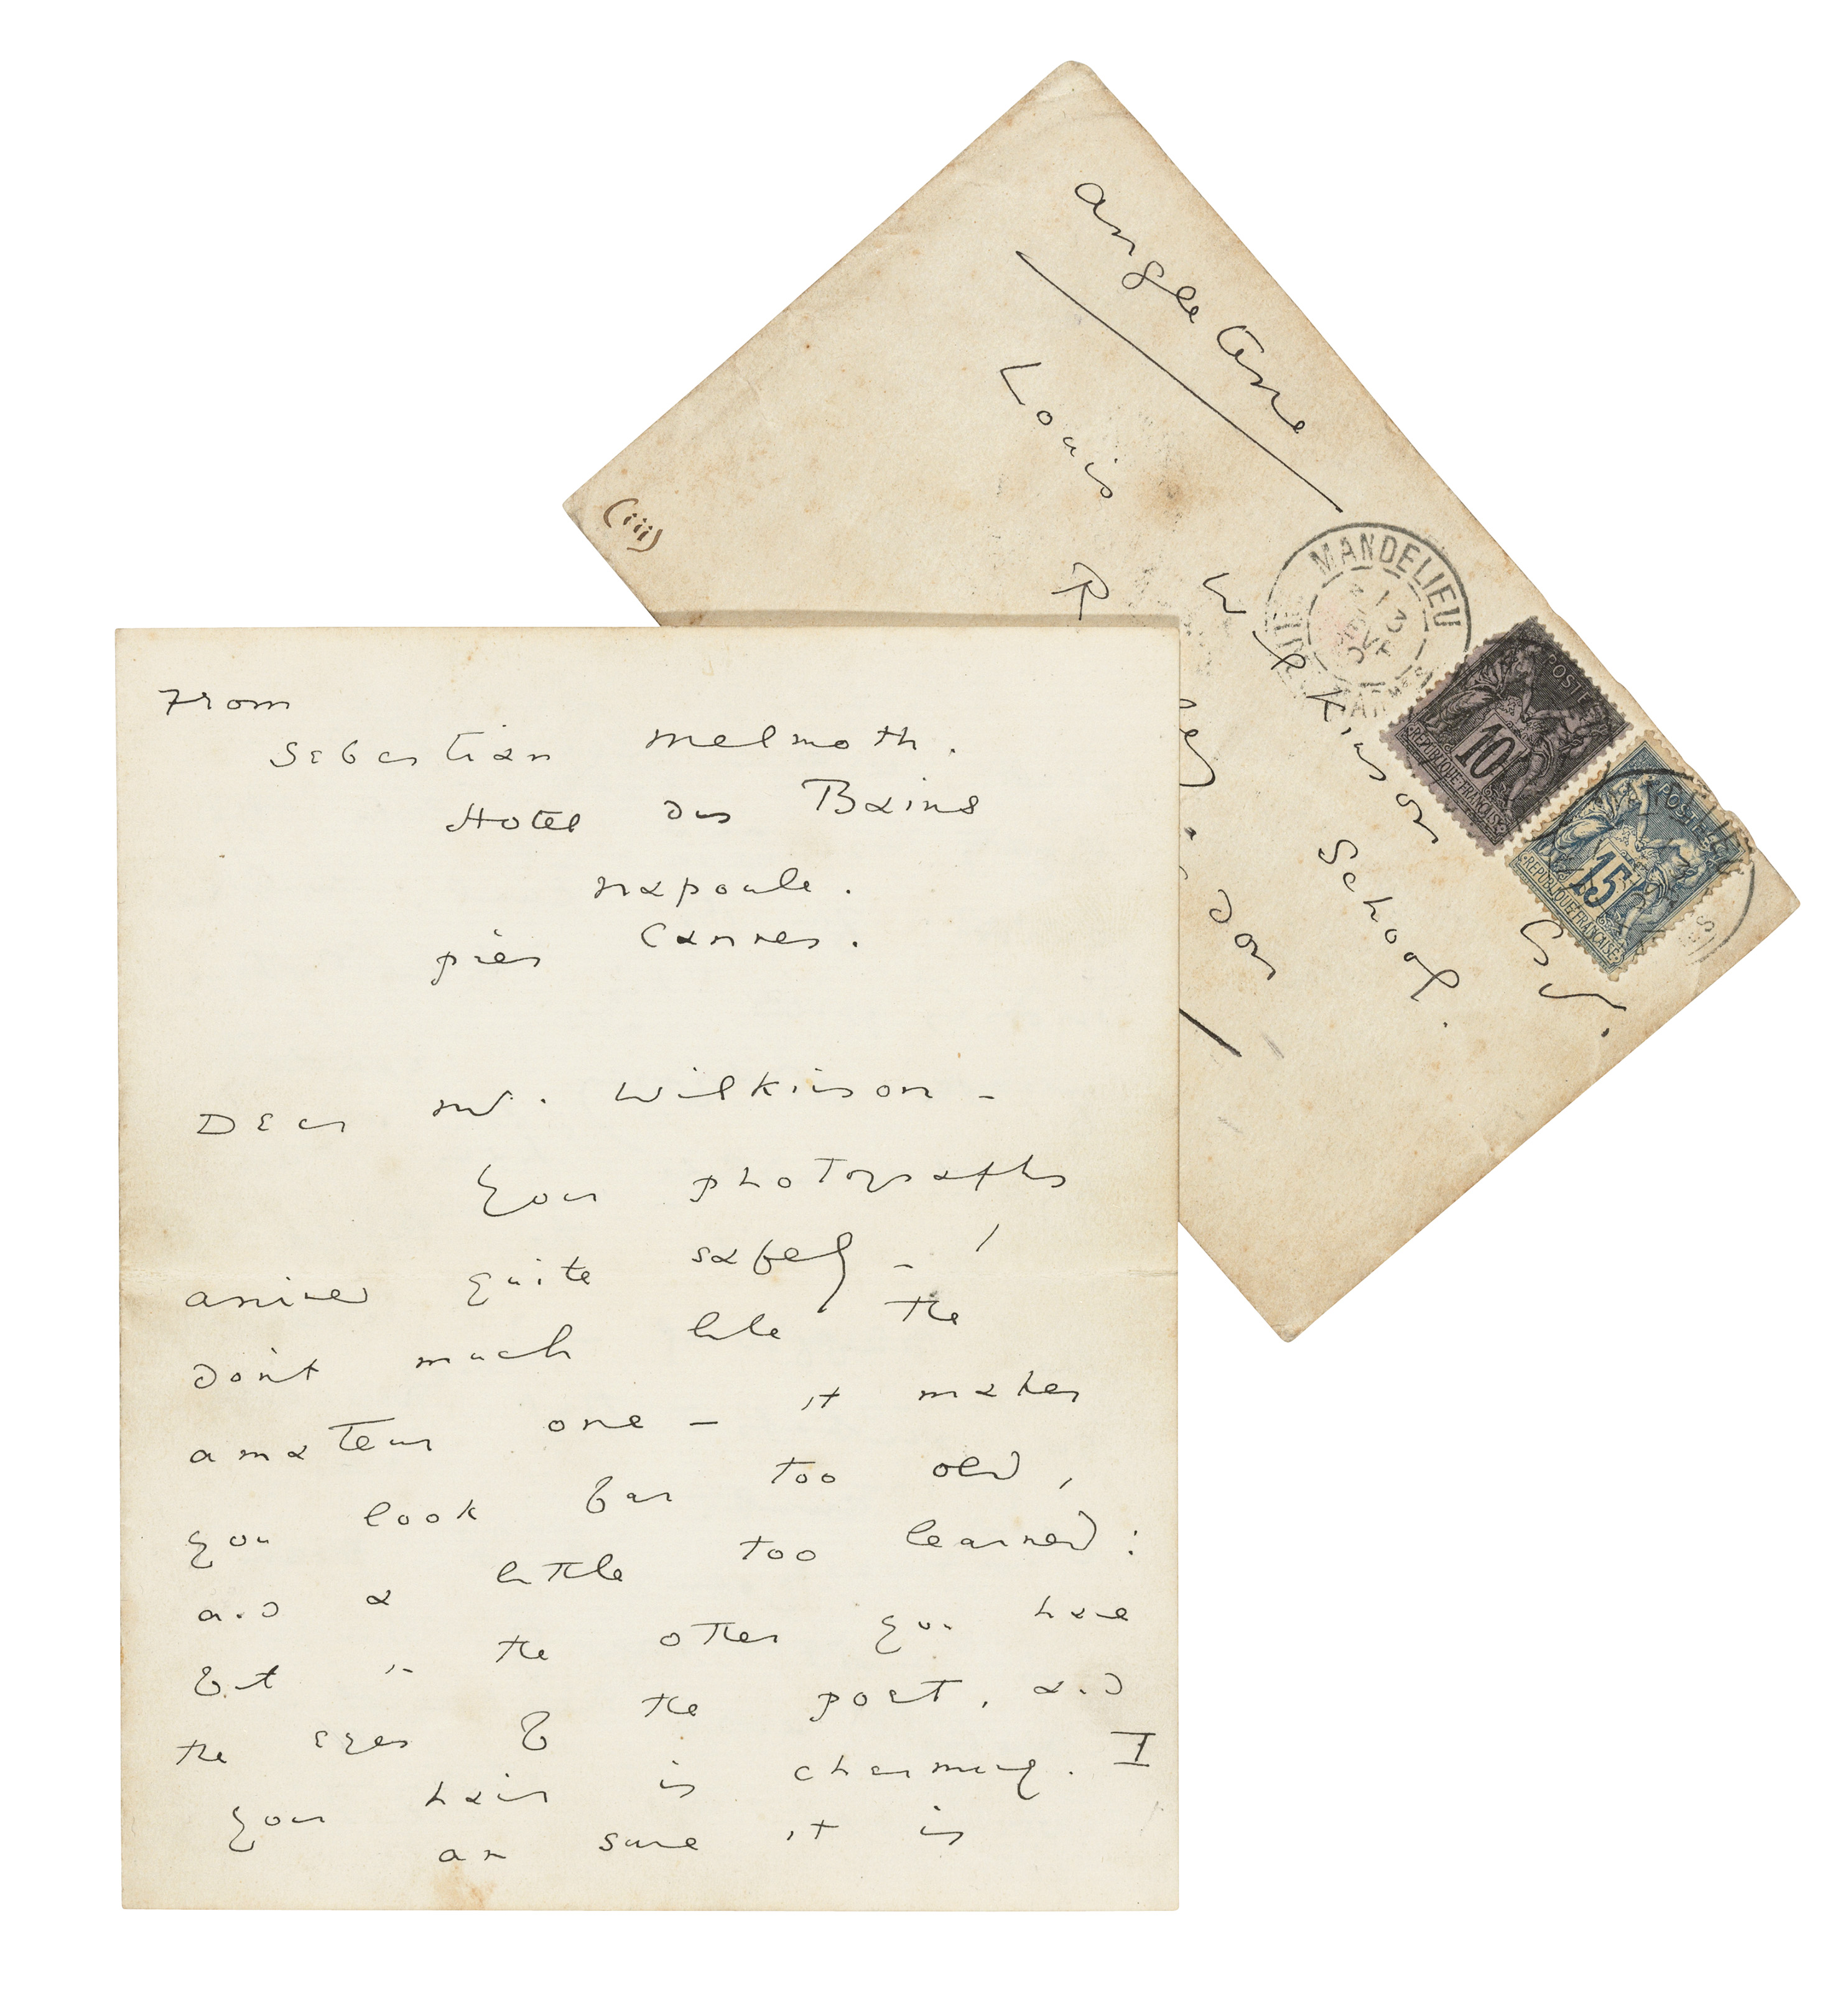 Angleterre
Louis Wilkinson Esq.
R School.
(iii)
MANDELIEU
13
POSTES
10
REPUBLIQUE FRANCAISE
POSTES
15
REPUBLIQUE FRANCAISE
From
Sebastian Melmoth.
Hotel des Bains
Napoule.
près Cannes.
Dear Mr. Wilkinson –
Your photographs
arrived quite safely – I
don't much like the
amateur one – it makes
you look far too old,
and a little too learned:
but in the other you have
the eyes of the poet, and
your hair is charming. I
am sure it is